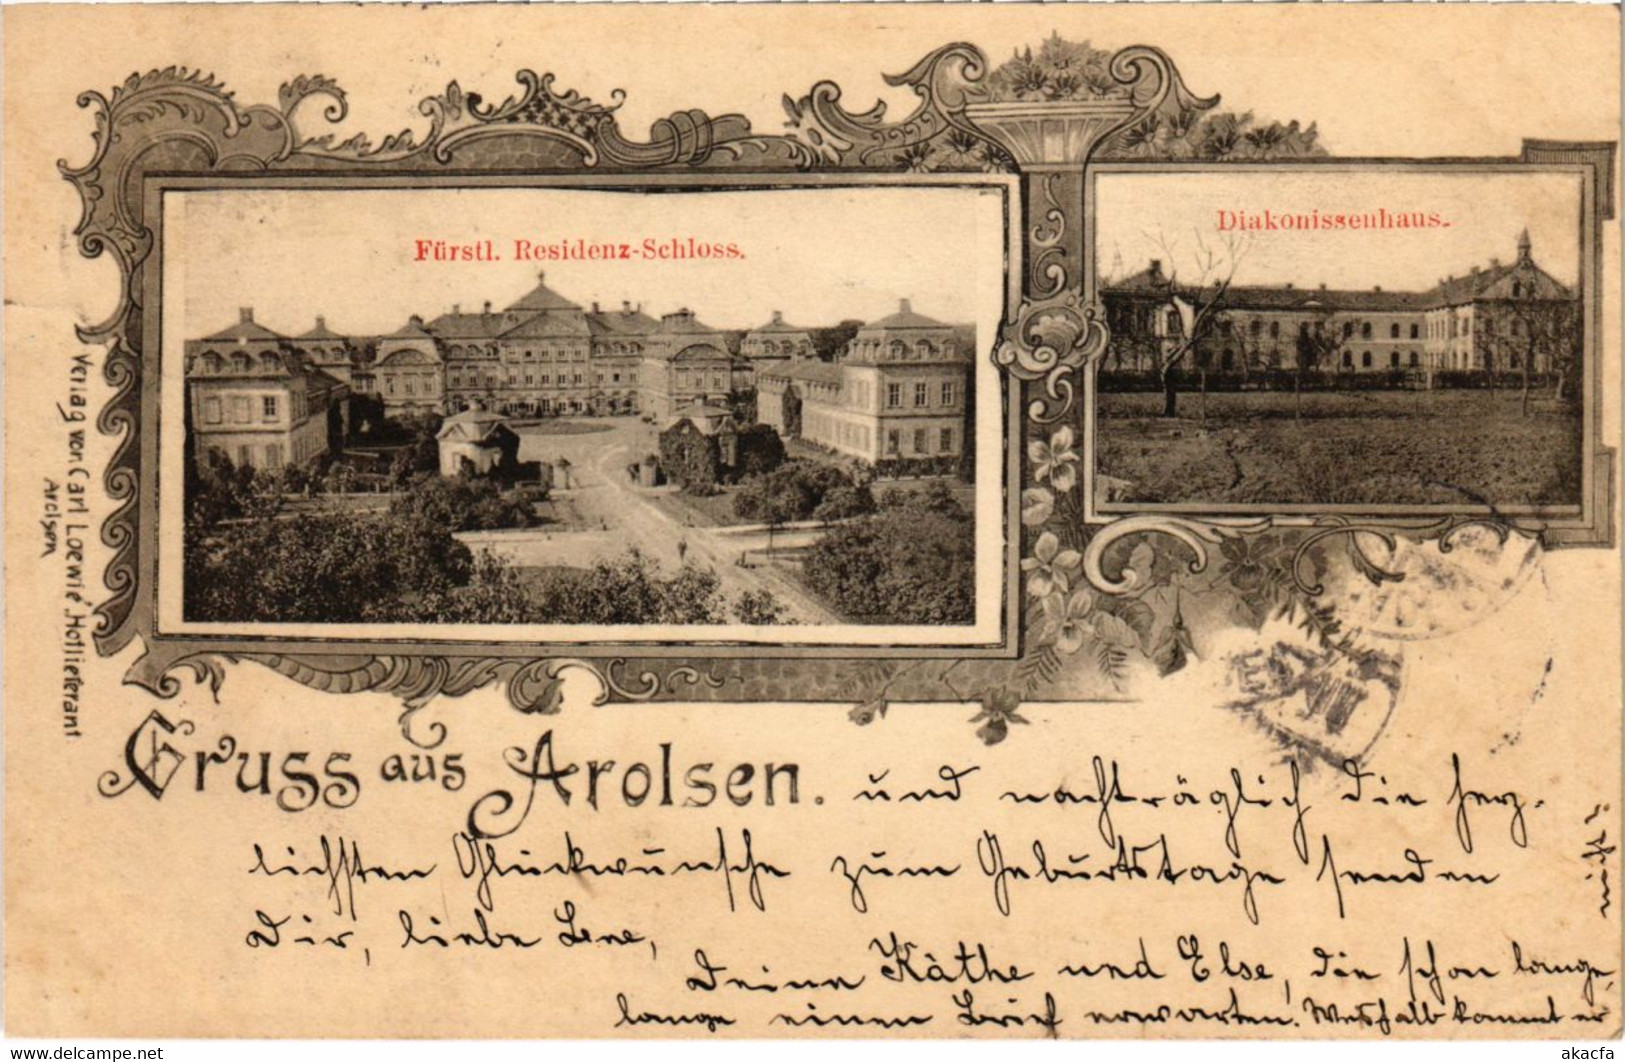 Fürstl. Residenz-Schloss.
Diakonissenhaus.
Verlag von Carl Loewié Hoflieferant
Arolsen
Gruss aus Arolsen. und nachträglich die herz-
lichsten Glückwünsche zum Geburtstage senden
Dir, liebe Lene,
Deine Käthe und Else, die schon lange,
lange einen Brief erwarten. Weshalb kommt er
nicht?
akacfa
www.delcampe.net